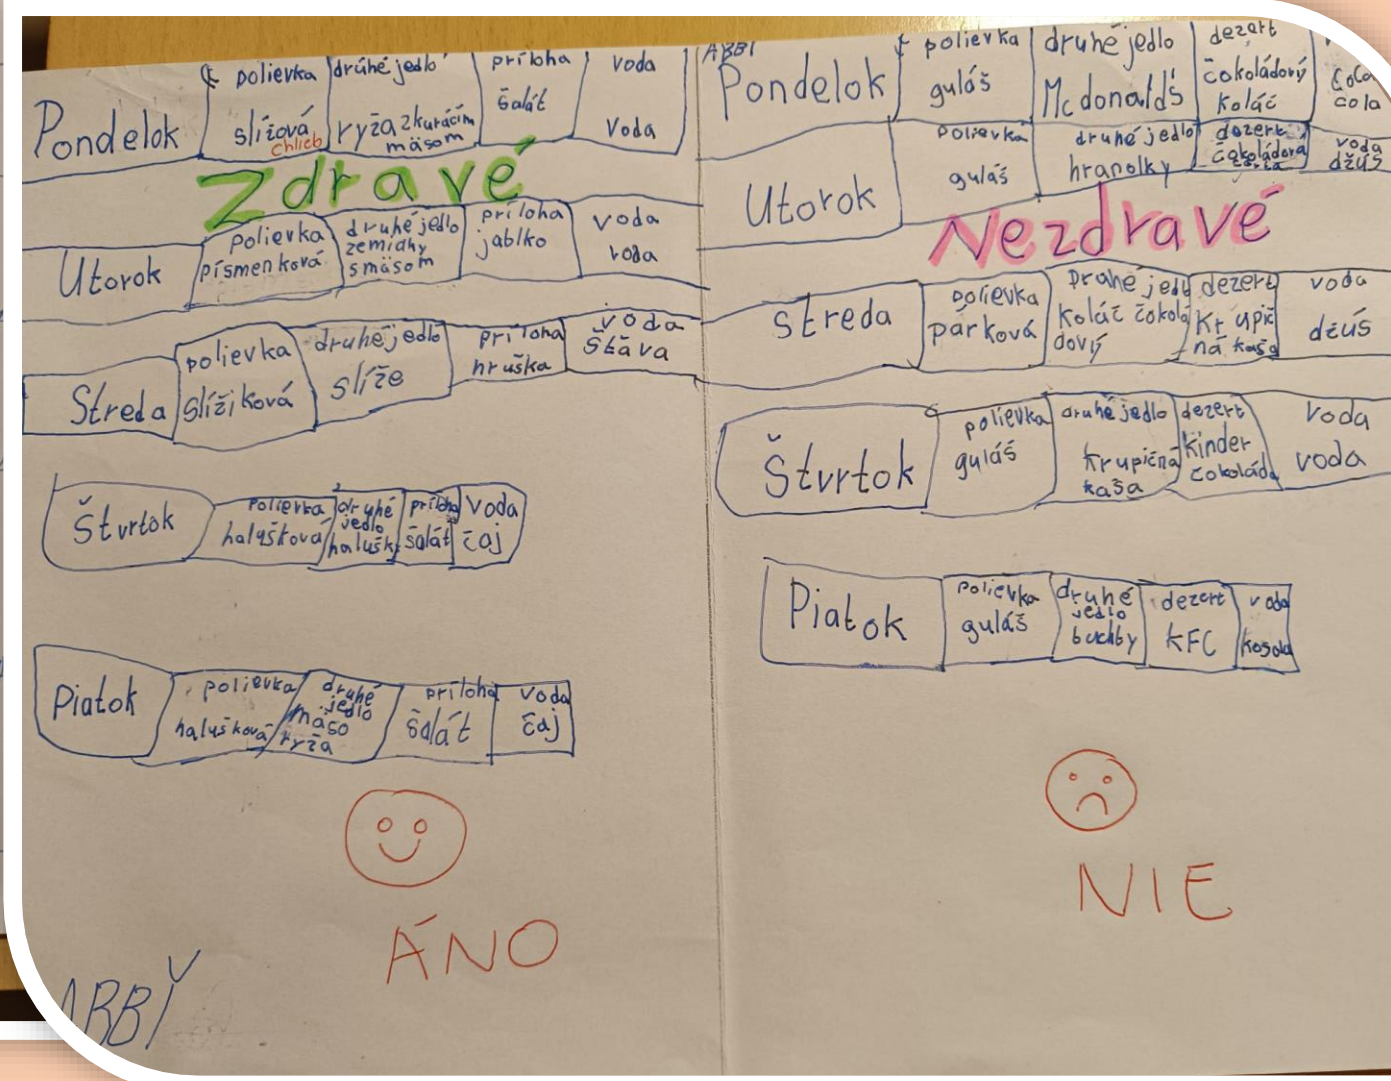 Pondelok
polievka
slížová
chlieb
drúhé jedlo
ryža z kurácím
mäsom
príloha
šalát
voda
voda
Zdravé
Utorok
polievka
písmenková
druhé jedlo
zemiaky
s mäsom
príloha
jablko
voda
voda
Streda
polievka
slížiková
druhé jedlo
slíže
príloha
hruška
voda
šťáva
Štvrtok
polievka
halušková
druhé
jedlo
halušk
príloha
šalát
voda
čaj
Piatok
polievka
halušková
druhé
jedlo
mäso
ryža
príloha
šalát
voda
čaj
ÁNO
ABBÝ
ABBÍ
Pondelok
polievka
guláš
druhé jedlo
Mcdonald's
dezert
čokoládový
koláč
cola
Utorok
Polievka
guláš
druhé jedlo
hranolky
dezert
čokoládová
torta
voda
džús
Nezdravé
streda
polievka
párková
Druhé jedlo
koláč čokolá
dový
dezert
krupič
ná kaša
voda
džús
Štvrtok
polievka
guláš
druhé jedlo
krupičná
kaša
dezert
kinder
čokoláda
voda
voda
Piatok
polievka
guláš
druhé
jedlo
buchby
dezert
KFC
voda
NIE